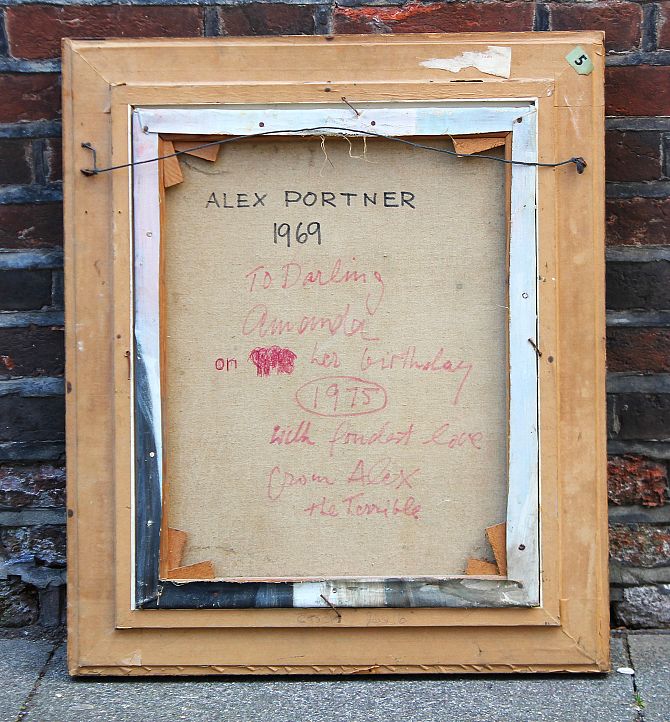 5
ALEX PORTNER
1969
To Darling
Amanda
on her birthday
1975
with fondest love
from Alex
the Terrible